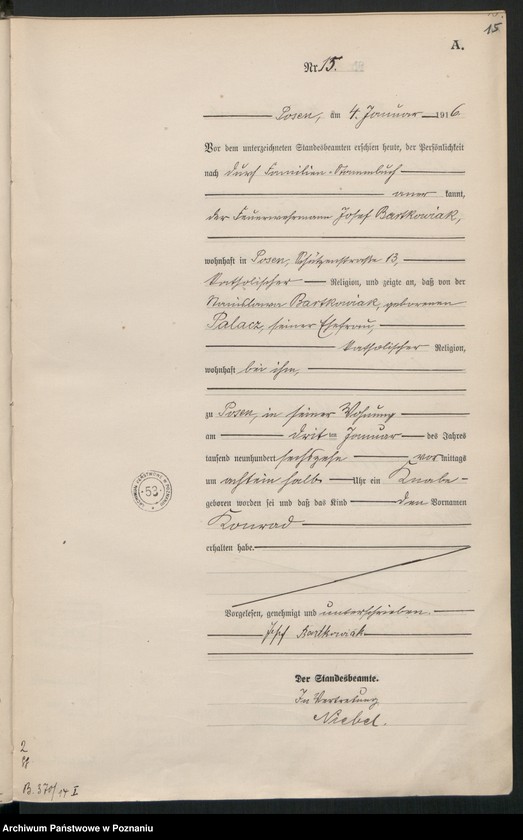 15.
A.
Nr. 15.
Posen, am 4. Januar 1916
Vor dem unterzeichneten Standesbeamten erschien heute, der Persönlichkeit
nach durch Familien-Stammbuch
aner kannt,
der Feuerwehrmann Josef Bartkowiak,
wohnhaft in Posen, Schützenstraße 13,
katholischer Religion, und zeigte an, daß von der
Stanislawa Bartkowiak, geborenen
Palacz, seiner Ehefrau,
katholischer Religion,
wohnhaft bei ihm,
zu Posen, in seiner Wohnung
am Januar des Jahres
tausend neunhundert sechszehn vormittags
um acht ein halb Uhr ein Knabe
geboren worden sei und daß das Kind den Vornamen
Konrad
erhalten habe.
Vorgelesen, genehmigt und unterschrieben.
Josef Bartkowiak
Der Standesbeamte.
In Vertretung
Niebel.
53
2
B. 370/14 I
Archiwum Państwowe w Poznaniu